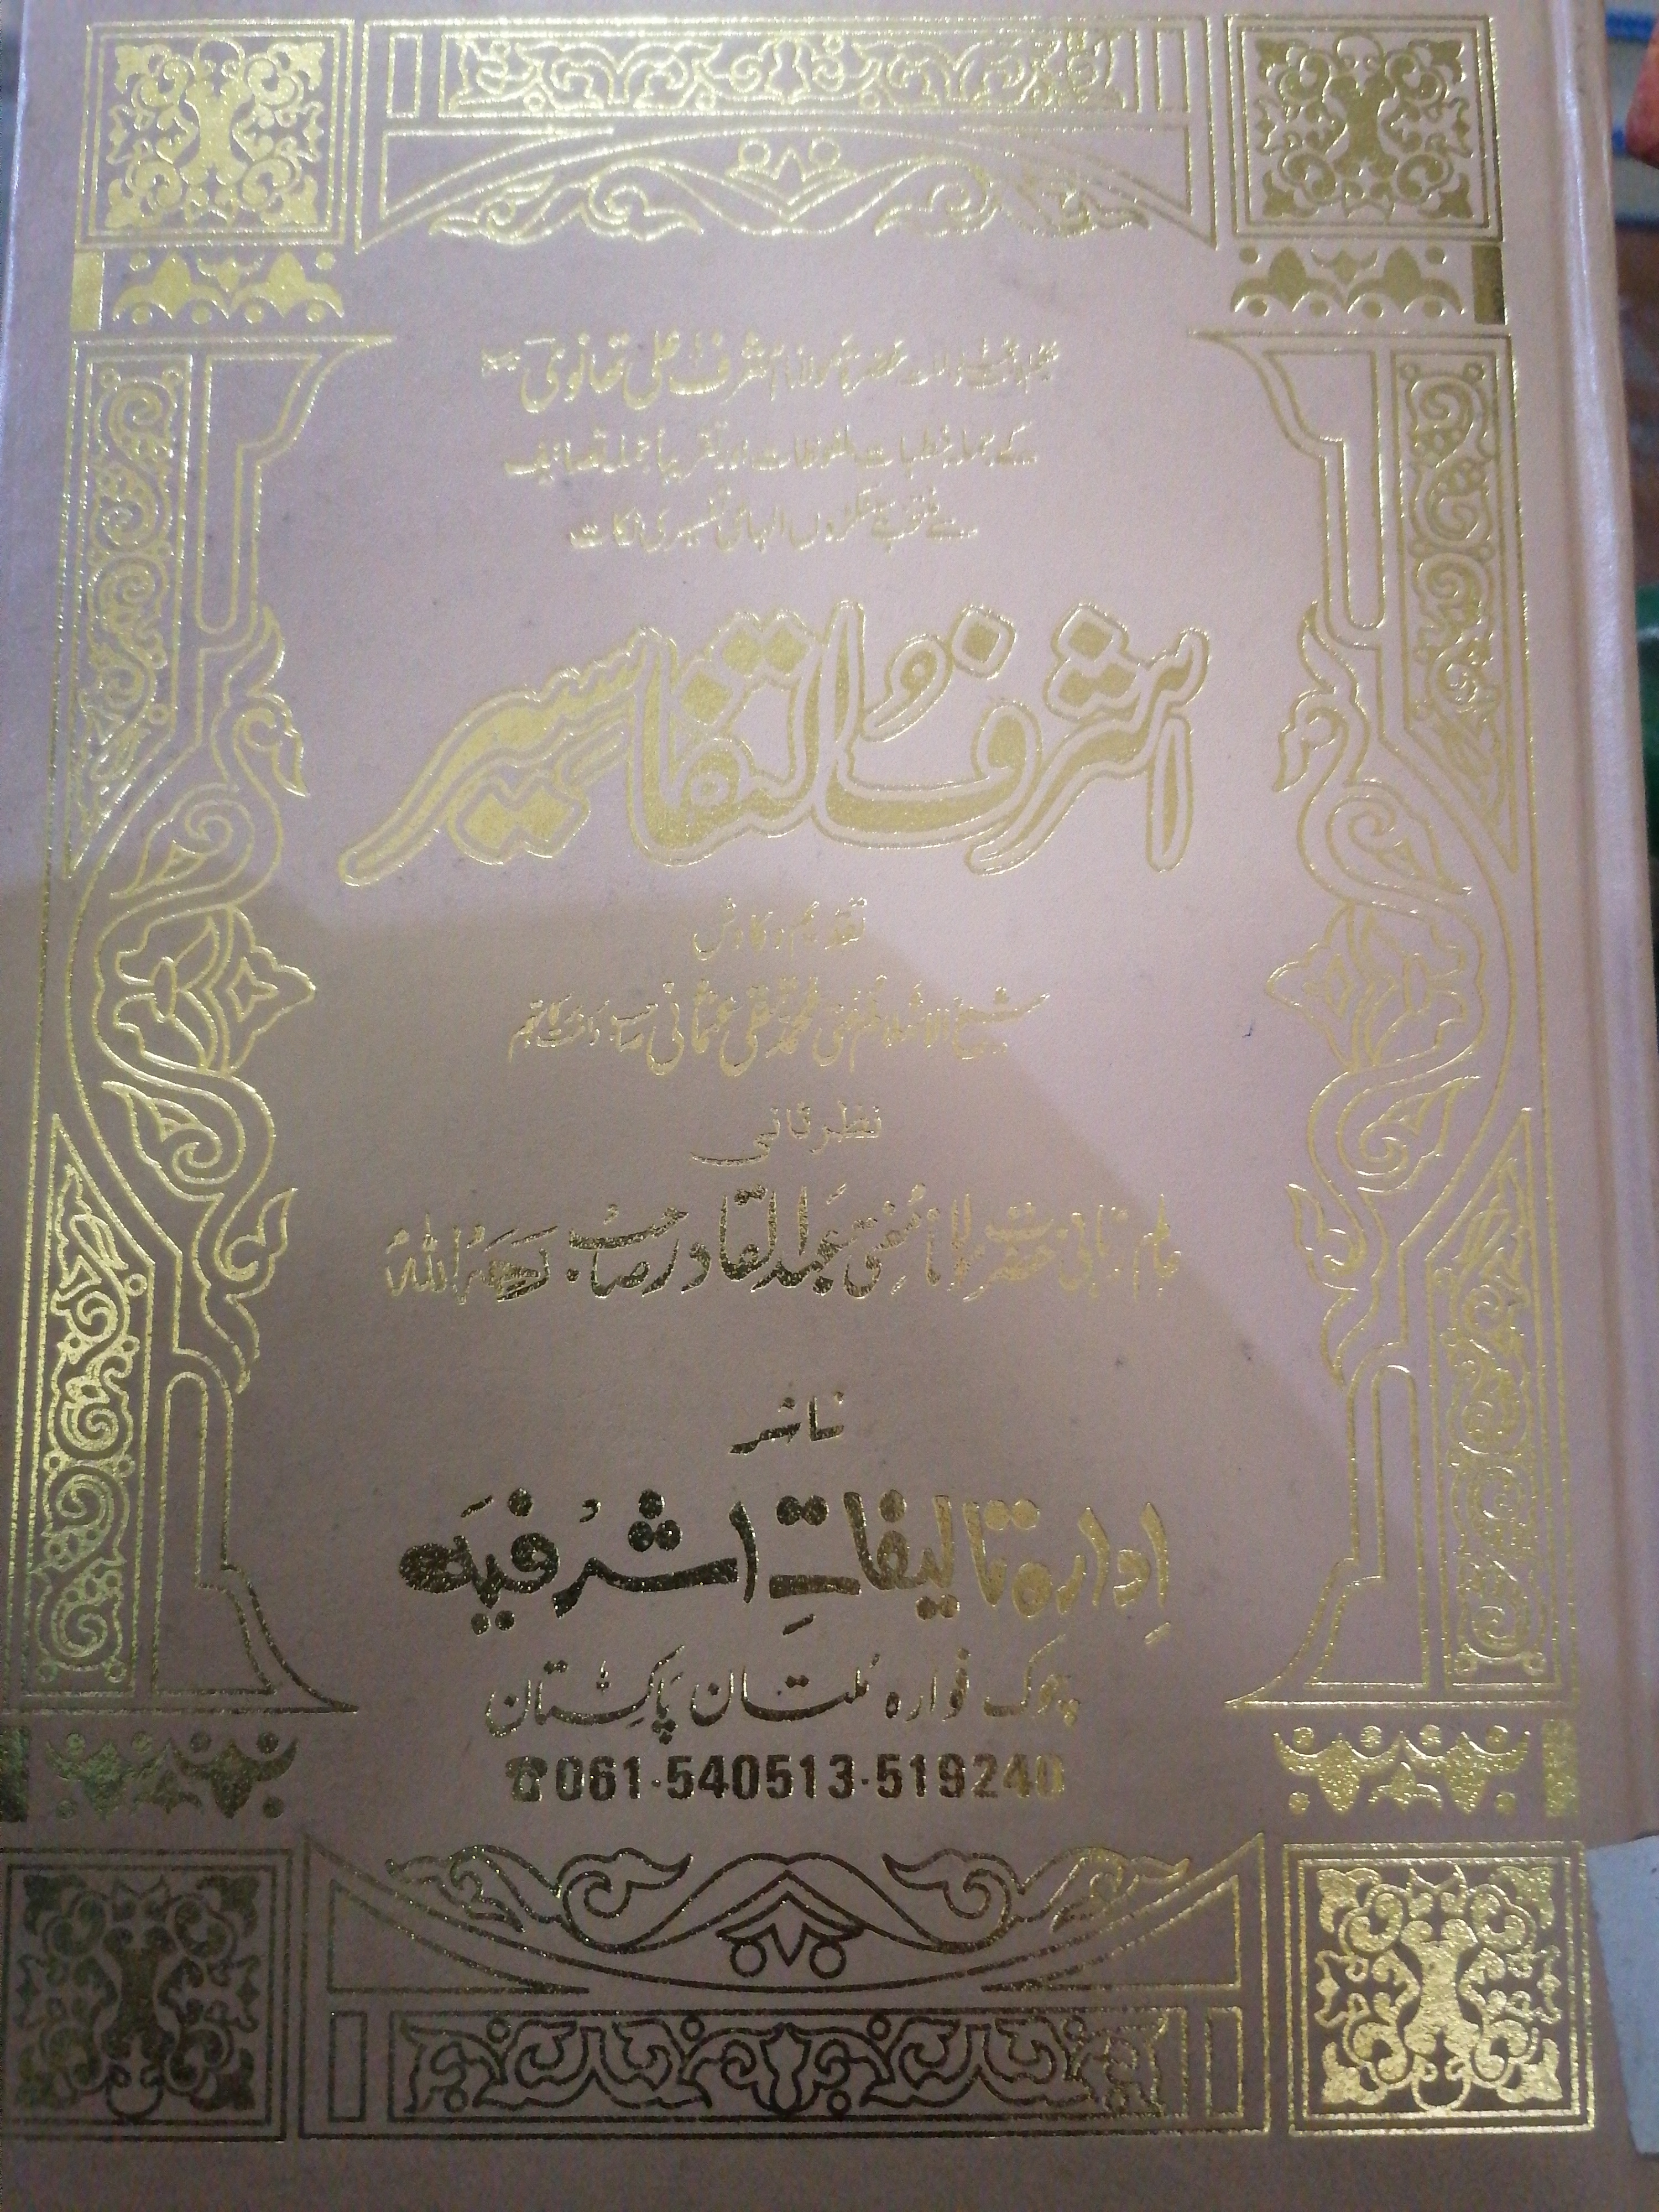 حکیم الامت مجدد الملت حضرۃ مولانا محمد اشرف علی تھانوی
کے جملہ خطبات ملفوظات اور تقریباً جملہ تصانیف
سے منتخب سینکڑوں الہامی تفسیری نکات
اشرفُ التفاسیر
تقدیم و کاوش
شیخ الاسلام مفتی محمد تقی عثمانی دامت برکاتہم
نظر ثانی
عالم ربانی حضرت مولانا مُفتی عبد القادر صاحب رحمہ اللہ
ناشر
اِدارہ تالیفاتِ اشرفیہ
چوک فوارہ مُلتان پاکستان
☎061-540513-519240